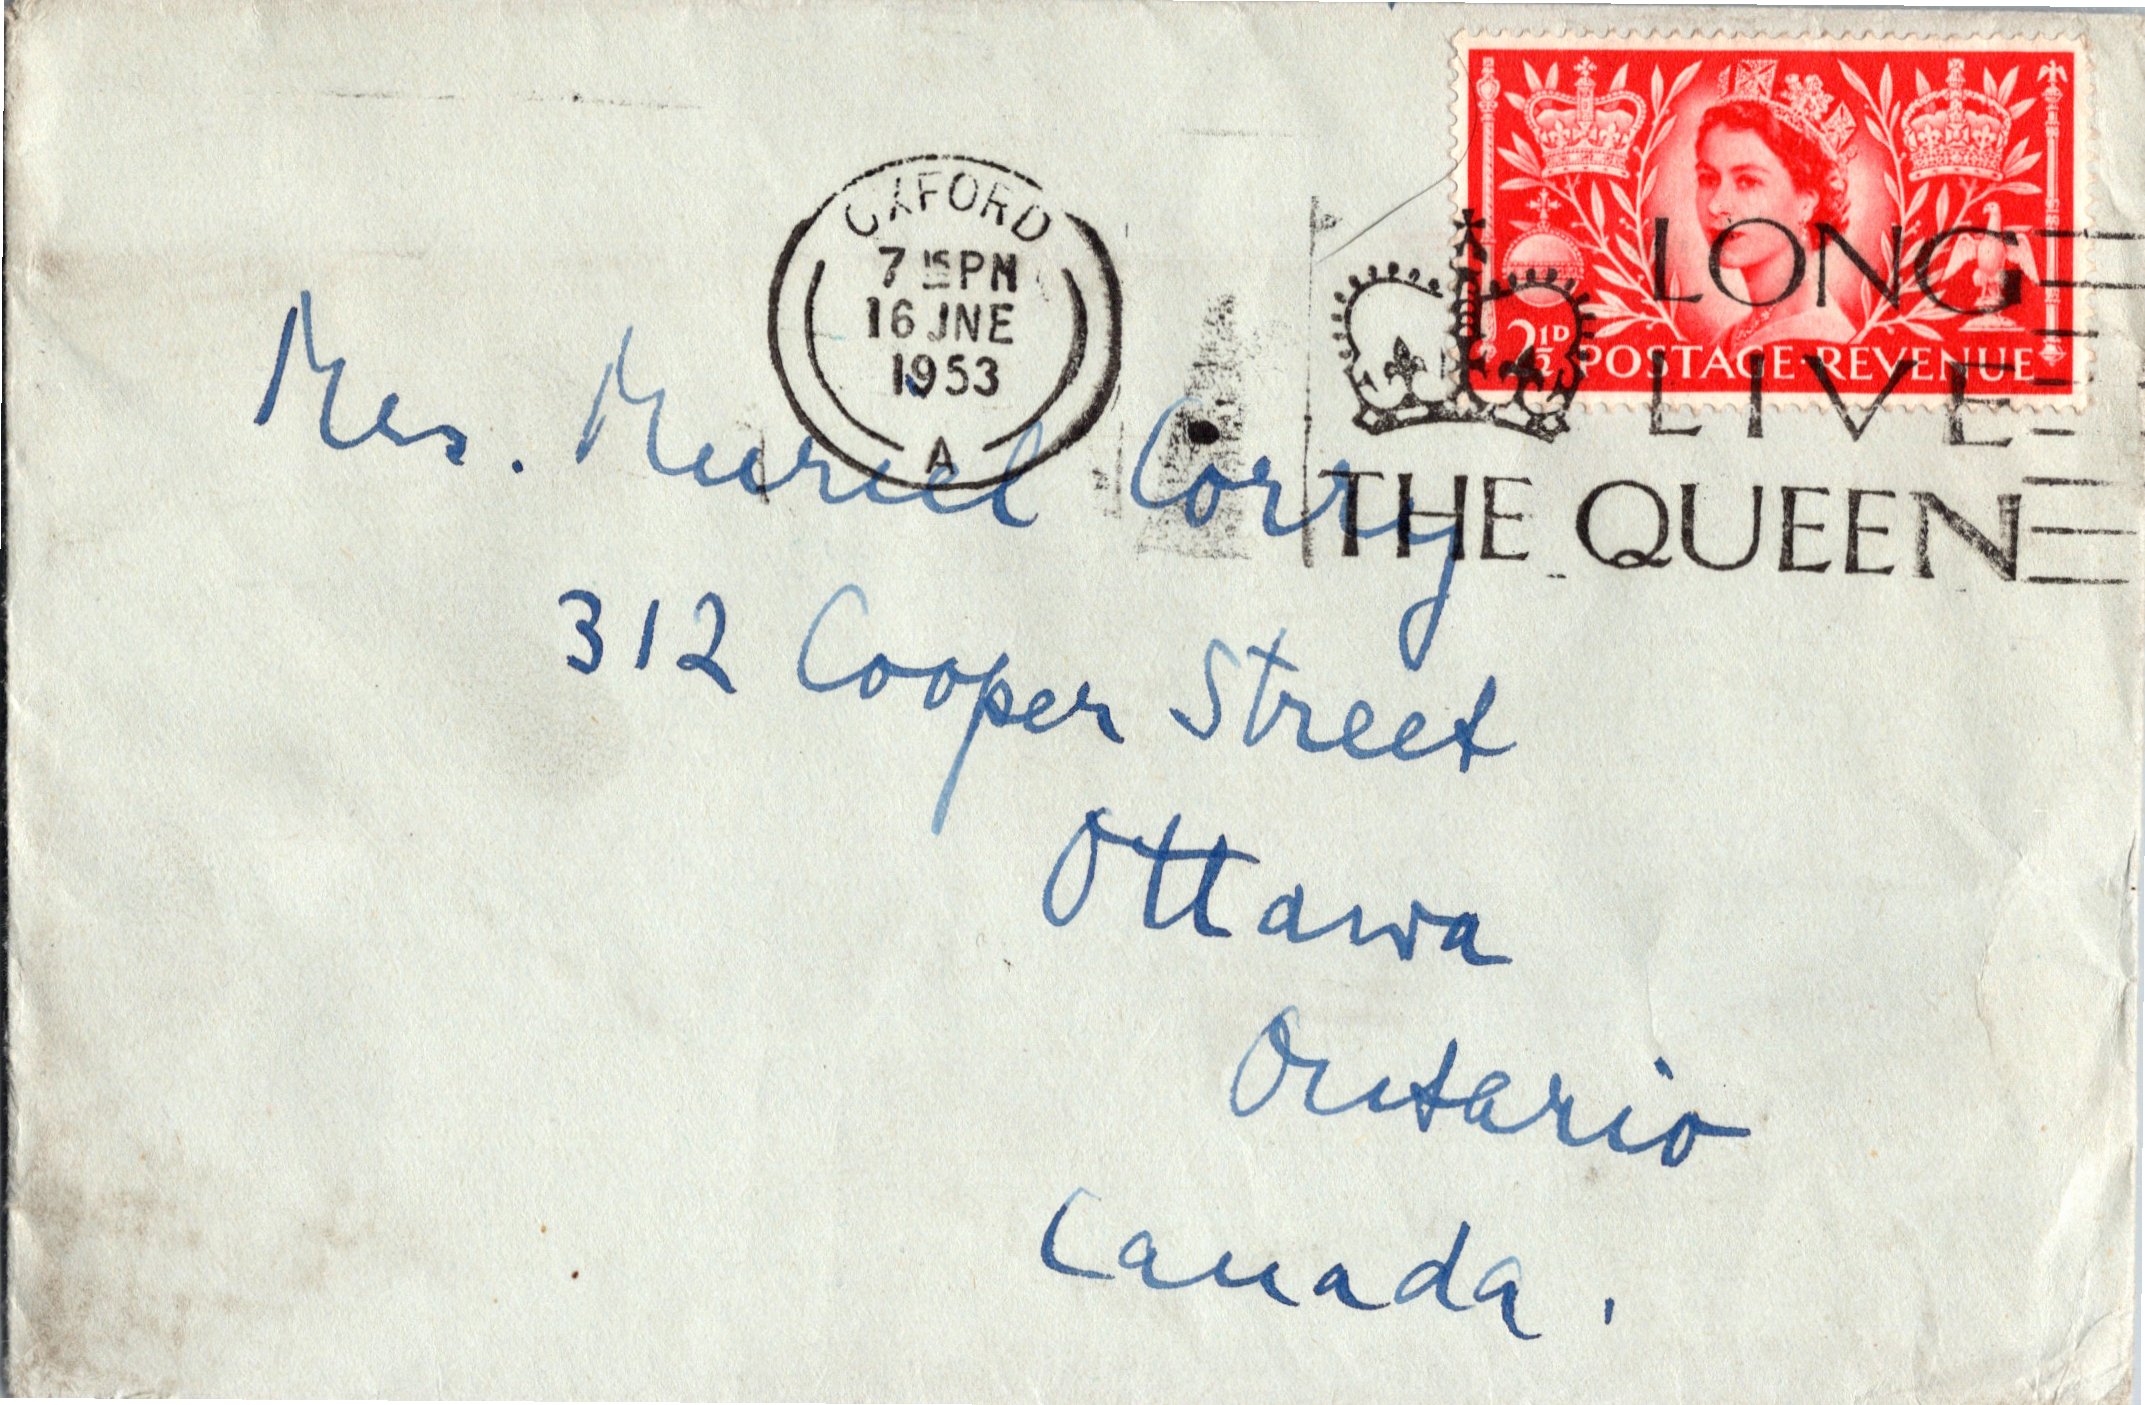 OXFORD
7 15 PM
16 JNE
1953
A
LONG
LIVE
THE QUEEN
2½D POSTAGE·REVENUE
Mrs. Muriel Corry
312 Cooper Street
Ottawa
Ontario
Canada.